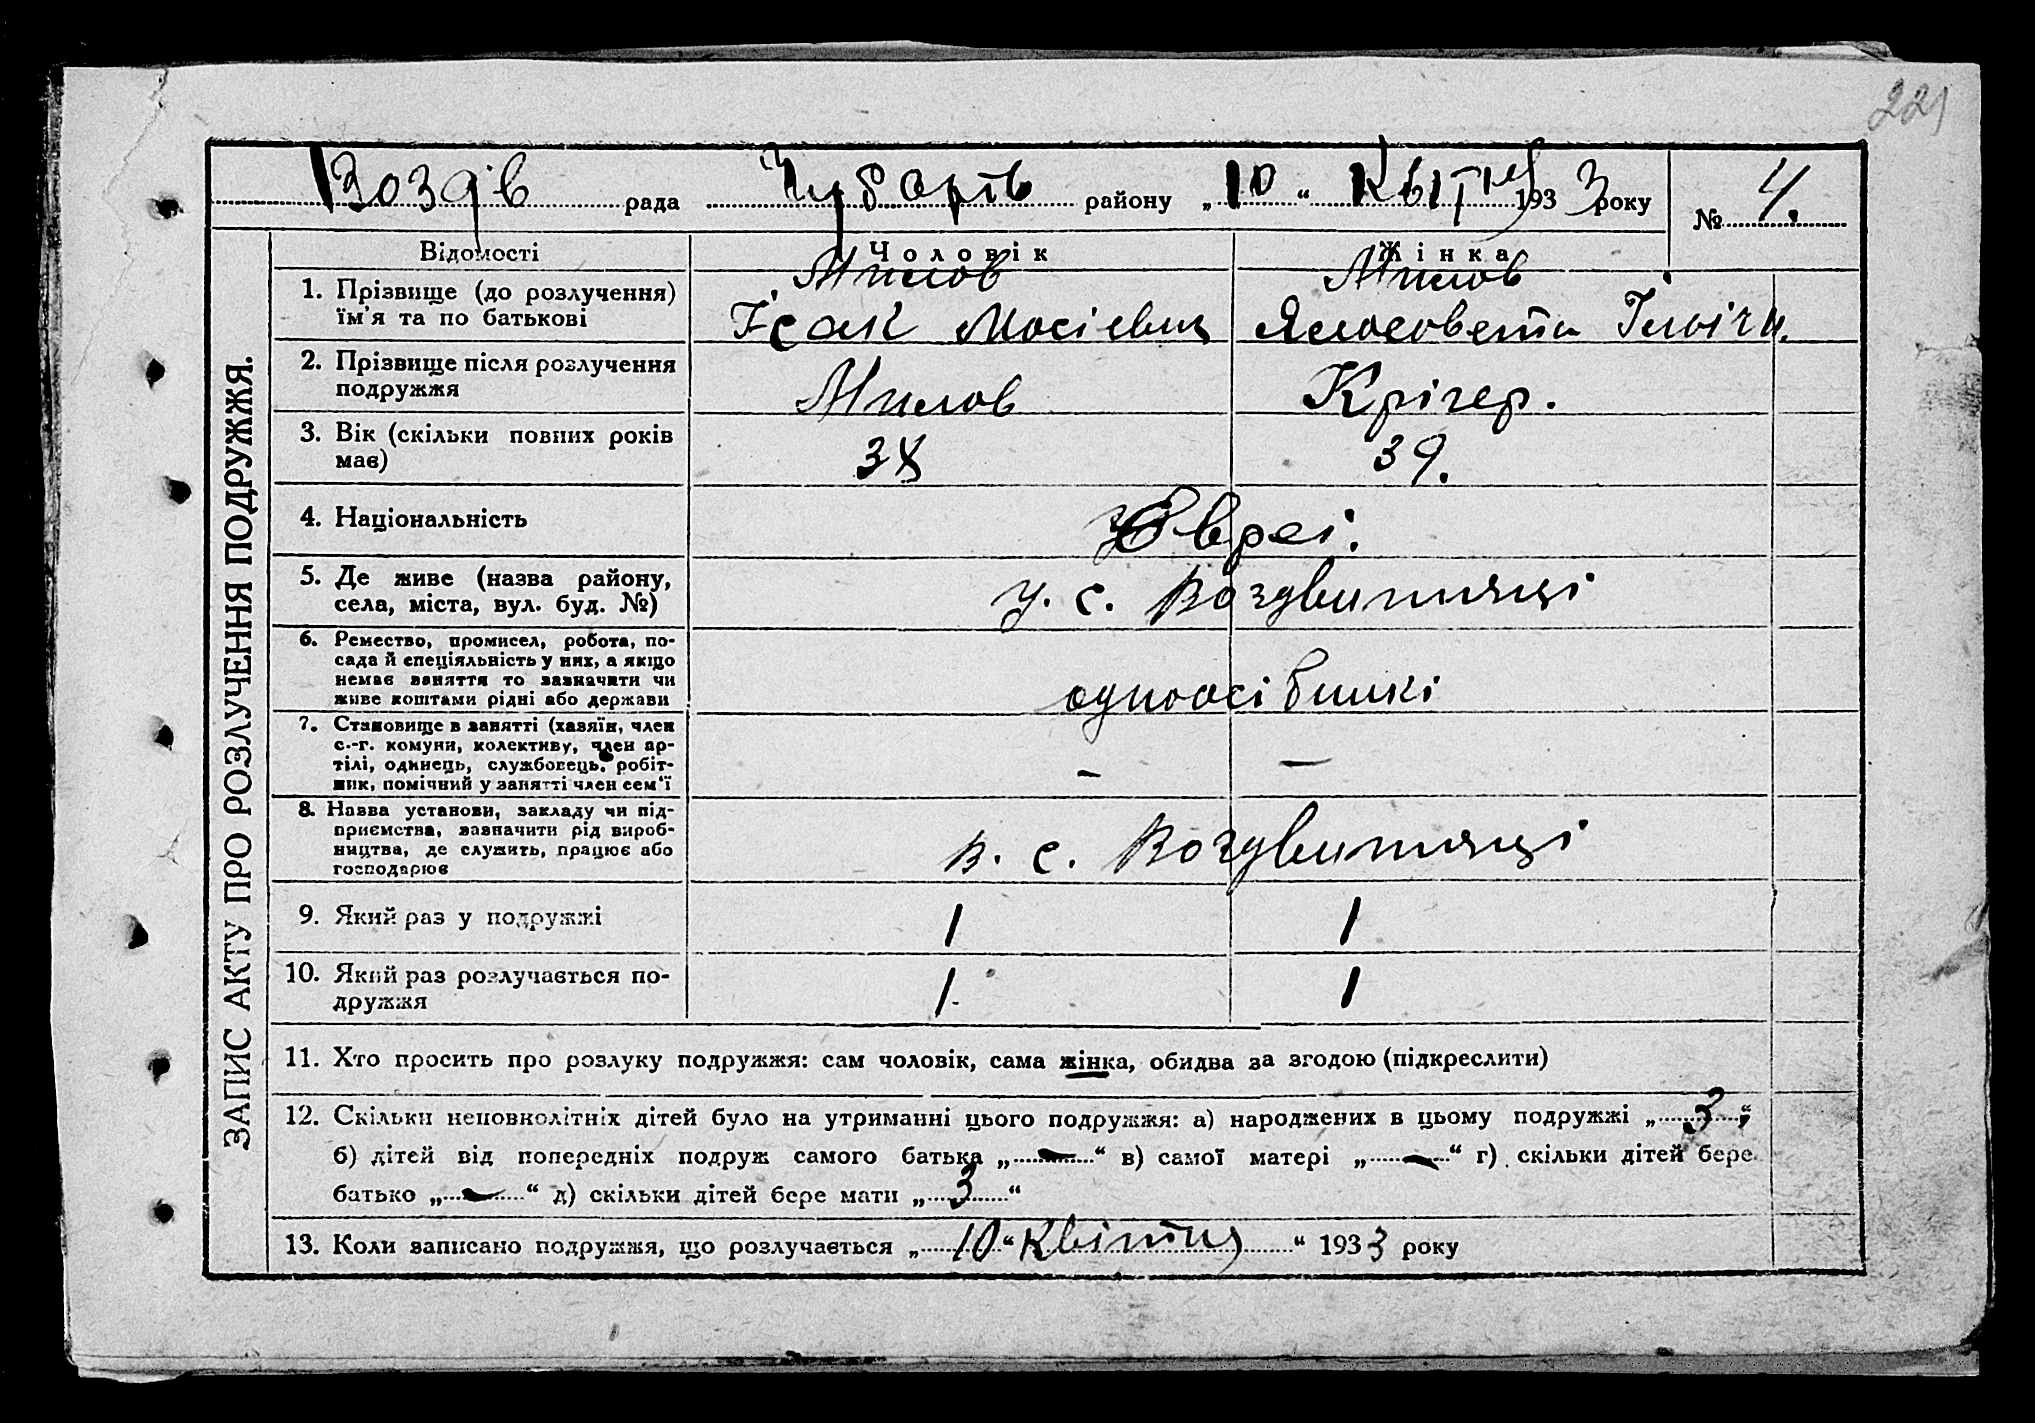 221
Воздв рада Чубарів району „10“ Квітня 1933 року № 4.
ЗАПИС АКТУ ПРО РОЗЛУЧЕННЯ ПОДРУЖЖЯ.
Відомості Чоловік Жінка
1. Прізвище (до розлучення) Милов Милов
їм'я та по батькові Ісак Мосієвич
2. Прізвище після розлучення
подружжя Милов Крігер.
3. Вік (скільки повних років
має) 38 39.
4. Національність Євреі.
5. Де живе (назва району,
села, міста, вул. буд. №) у. с.
6. Ремество, промисел, робота, по-
сада й спеціяльність у них, а якщо
немає заняття то зазначити чи
живе коштами рідні або держави одноосібникі
7. Становище в занятті (хазяїн, член
с.-г. комуни, колективу, член ар-
тілі, одинець, службовець, робіт-
ник, помічний у занятті член сем'ї - —
8. Назва установи, закладу чи під-
приємства, зазначити рід вироб-
ництва, де служить, працює або
господарює в. с.
9. Який раз у подружжі 1 1
10. Який раз розлучається по-
дружжя 1. 1
11. Хто просить про розлуку подружжя: сам чоловік, сама жінка, обидва за згодою (підкреслити)
12. Скільки неповнолітніх дітей було на утриманні цього подружжя: а) народжених в цьому подружжі „3“;
б) дітей від попередніх подруж самого батька „—“ в) самої матері „—“ г) скільки дітей бере
батько „—“ д) скільки дітей бере мати „3“
13. Коли записано подружжя, що розлучається „10“ Квітня“ 1933 року